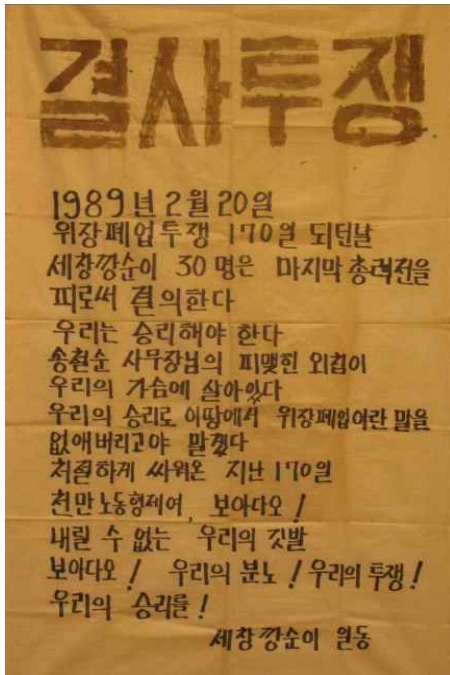 결사투쟁
1989년 2월 20일
위장폐업투쟁 170일 되던날
세창깡순이 30명은 마지막 총력전을
피로써 결의한다
우리는 승리해야 한다
송철순 사무장님의 피맺힌 외침이
우리의 가슴에 살아있다
우리의 승리로 이땅에서 위장폐업이란 말을
없애버리고야 말겠다
처절하게 싸워온 지난 170일
천만노동형제여, 보아다오!
내릴 수 없는 우리의 깃발
보아다오! 우리의 분노! 우리의 투쟁!
우리의 승리를!
세창깡순이 일동